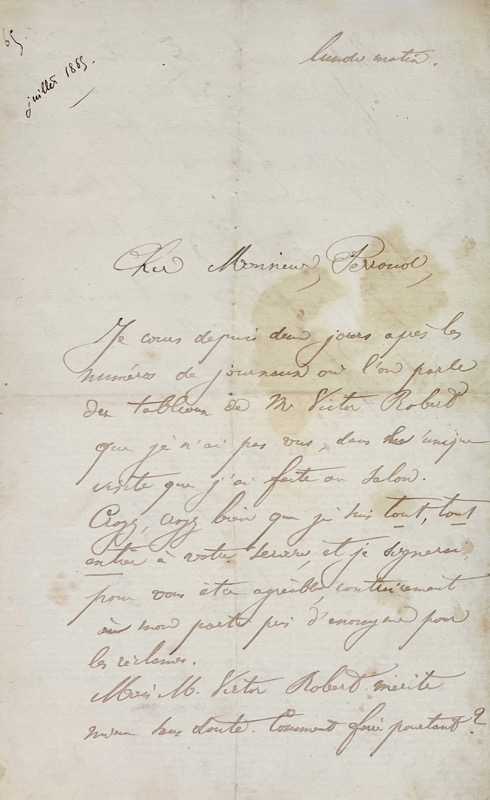 65
juillet 1865.
lundi matin.
Cher Monsieur, Perroud,
Je cours depuis deux jours après les
numéros de journaux où l'on parle
des tableaux de Mr Victor Robert
que je n'ai pas vus, dans l'unique
visite que j'ai faite au Salon.
Croyez, croyez bien que je suis tout, tout
entier à votre service, et je signerai,
pour vous être agréable, contrairement
à mon parti pris d'ennuyeux pour
les réclames.
Mais M. Victor Robert mérite
mieux sans doute. Comment faire pourtant?